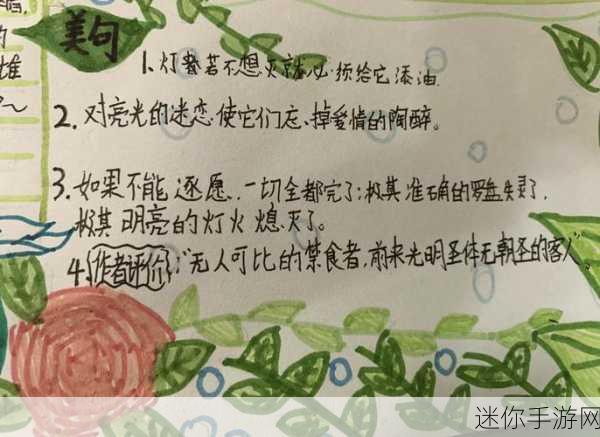 美句
1、灯盏若不想灭就必须给它添油.
2. 对亮光的迷恋使它们忘掉爱情的陶醉。
3. 如果不能逐愿，一切全都完了；极其准确的罗盘失灵了，
极其明亮的灯火熄灭了。
4.作者评价："无人可比的禁食者，前来光明圣体无朝圣的客人"。
雄
迷你手游网